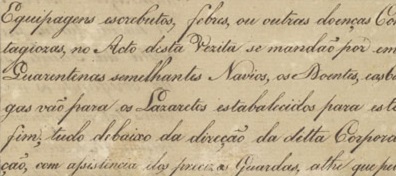 Equipagens escrobutos, febres, ou outras doenças Con
tagiozas, no Acto desta Vezita se mandão por em
Quarentenas semelhantes Navios, os Doentes, e as ba
gas vão para os Lazaretos estabalecidos para este
fim; tudo debaixo da direção da ditta Corpora
ção, com assistencia dos precizos Guardas, athe que